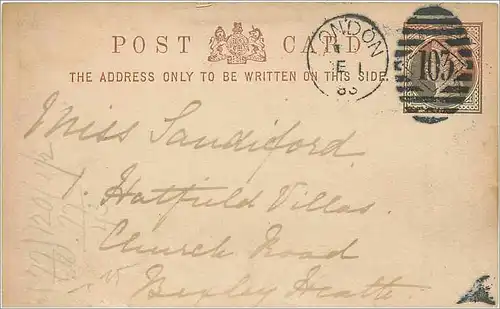 POST CARD
THE ADDRESS ONLY TO BE WRITTEN ON THIS SIDE.
LONDON
FE 1
83
103
Miss Sandiford
Hatfield Villas.
Church Road
Bexley Heath